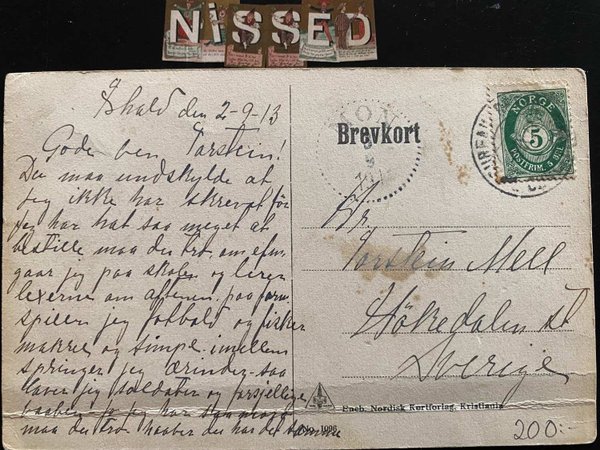 NiSSED
Fhald den 2-9-13
Gode ven Torstein!
Du maa undskylde at
jeg ikke har skrevet før
jeg har hat saa meget at
bestille maa du tro. om efm
gaar jeg paa skolen og lærer
lexerne om aftenen. paa form
spiller jeg fotbald og fisker
makrel og simple imellem
springer jeg ærinder saa
laver jeg soldater og forsjellige
jeg har
maa du tro haaber du har det samme
Brevkort
NORGE
5
POSTFRIM. 5 ØRE
Hr.
Torstein Mell
Hökedalen st
Sverige
Eneb. Nordisk Kortforlag, Kristiania
200:-